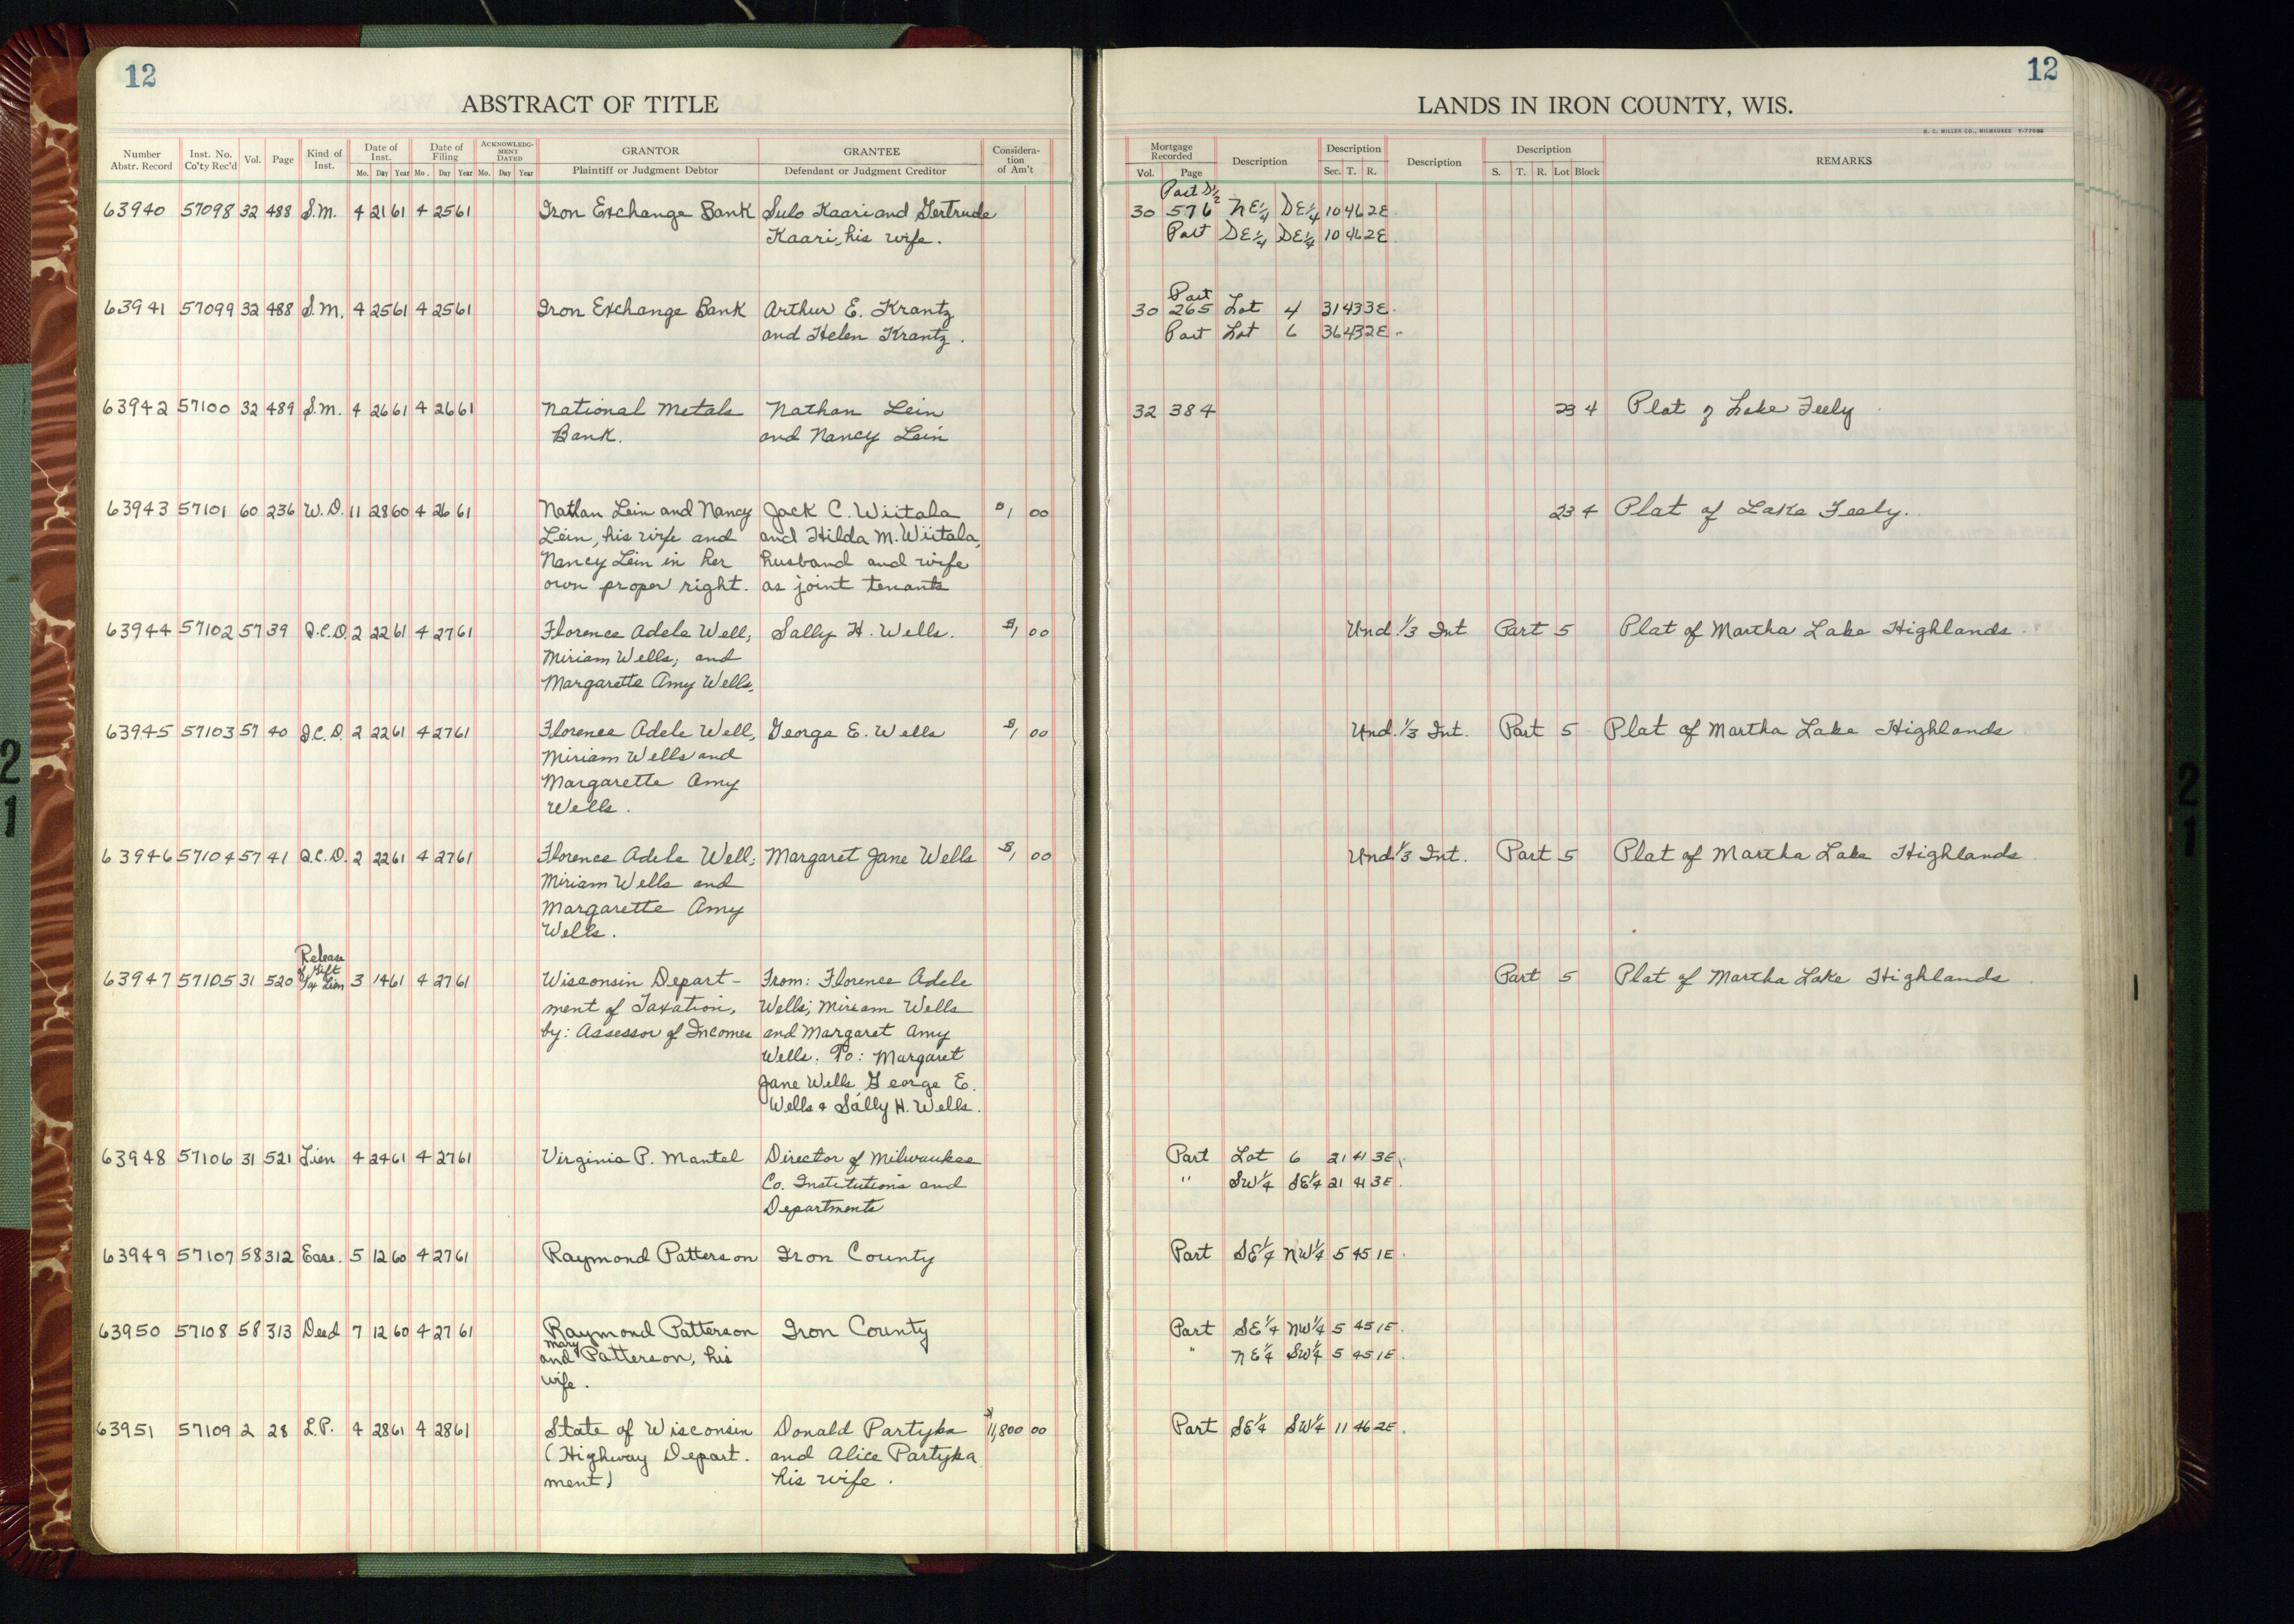 12
ABSTRACT OF TITLE
Number Abstr. Record Inst. No. Co'ty Rec'd Vol. Page Kind of Inst. Date of Inst. Mo. Day Year Date of Filing Mo. Day Year ACKNOWLEDG-MENT DATED Mo. Day Year GRANTOR Plaintiff or Judgment Debtor GRANTEE Defendant or Judgment Creditor Considera-tion of Am't
63940 57098 32 488 S.M. 4 21 61 4 25 61 Iron Exchange Bank Sulo Kaari and Gertrude
Kaari, his wife.
63941 57099 32 488 S.M. 4 25 61 4 25 61 Iron Exchange Bank Arthur E. Krantz
and Helen Krantz.
63942 57100 32 489 S.M. 4 26 61 4 26 61 National Metals Nathan Lein
Bank. and Nancy Lein
63943 57101 60 236 W.D. 11 28 60 4 26 61 Nathan Lein and Nancy Jack C. Wiitala $1 00
Lein, his wife and and Hilda M. Wiitala,
Nancy Lein in her husband and wife
own proper right. as joint tenants
63944 57102 57 39 Q.C.D. 2 22 61 4 27 61 Florence Adele Well, Sally H. Wells. $1 00
Miriam Wells, and
Margarette Amy Wells.
63945 57103 57 40 Q.C.D. 2 22 61 4 27 61 Florence Adele Well, George E. Wells $1 00
Miriam Wells and
Margarette Amy
Wells.
63946 57104 57 41 Q.C.D. 2 22 61 4 27 61 Florence Adele Well; Margaret Jane Wells $1 00
Miriam Wells and
Margarette Amy
Wells.
Release
of Gift
63947 57105 31 520 Tax Lien 3 14 61 4 27 61 Wisconsin Depart- From: Florence Adele
ment of Taxation, Wells; Miriam Wells
by: Assessor of Incomes and Margaret Amy
Wells. To: Margaret
Jane Wells George E.
Wells & Sally H. Wells.
63948 57106 31 521 Lien 4 24 61 4 27 61 Virginia P. Mantel Director of Milwaukee
Co. Institutions and
Departments
63949 57107 58 312 Ease. 5 12 60 4 27 61 Raymond Patterson Iron County
63950 57108 58 313 Deed 7 12 60 4 27 61 Raymond Patterson Iron County
Mary
and Patterson, his
wife.
63951 57109 2 28 L.P. 4 28 61 4 28 61 State of Wisconsin Donald Partyka $11,800 00
(Highway Depart. and Alice Partyka
ment) his wife.
12
LANDS IN IRON COUNTY, WIS.
H. C. MILLER CO., MILWAUKEE
Mortgage Recorded Vol. Page Description Description Sec. T. R. Description Description S. T. R. Lot Block REMARKS
Part S½
30 576 NE¼ SE¼ 10 46 2E
Part SE¼ SE¼ 10 46 2E
Part
30 265 Lot 4 31 43 3E.
Part Lot 6 36 43 2E
32 384 23 4 Plat of Lake Feely
23 4 Plat of Lake Feely.
Und. 1/3 Int Part 5 Plat of Martha Lake Highlands
Und. 1/3 Int. Part 5 Plat of Martha Lake Highlands
Und. 1/3 Int. Part 5 Plat of Martha Lake Highlands
Part 5 Plat of Martha Lake Highlands
Part Lot 6 21 41 3E
" SW¼ SE¼ 21 41 3E.
Part SE¼ NW¼ 5 45 1E.
Part SE¼ NW¼ 5 45 1E.
" NE¼ SW¼ 5 45 1E.
Part SE¼ SW¼ 11 46 2E.
21
21